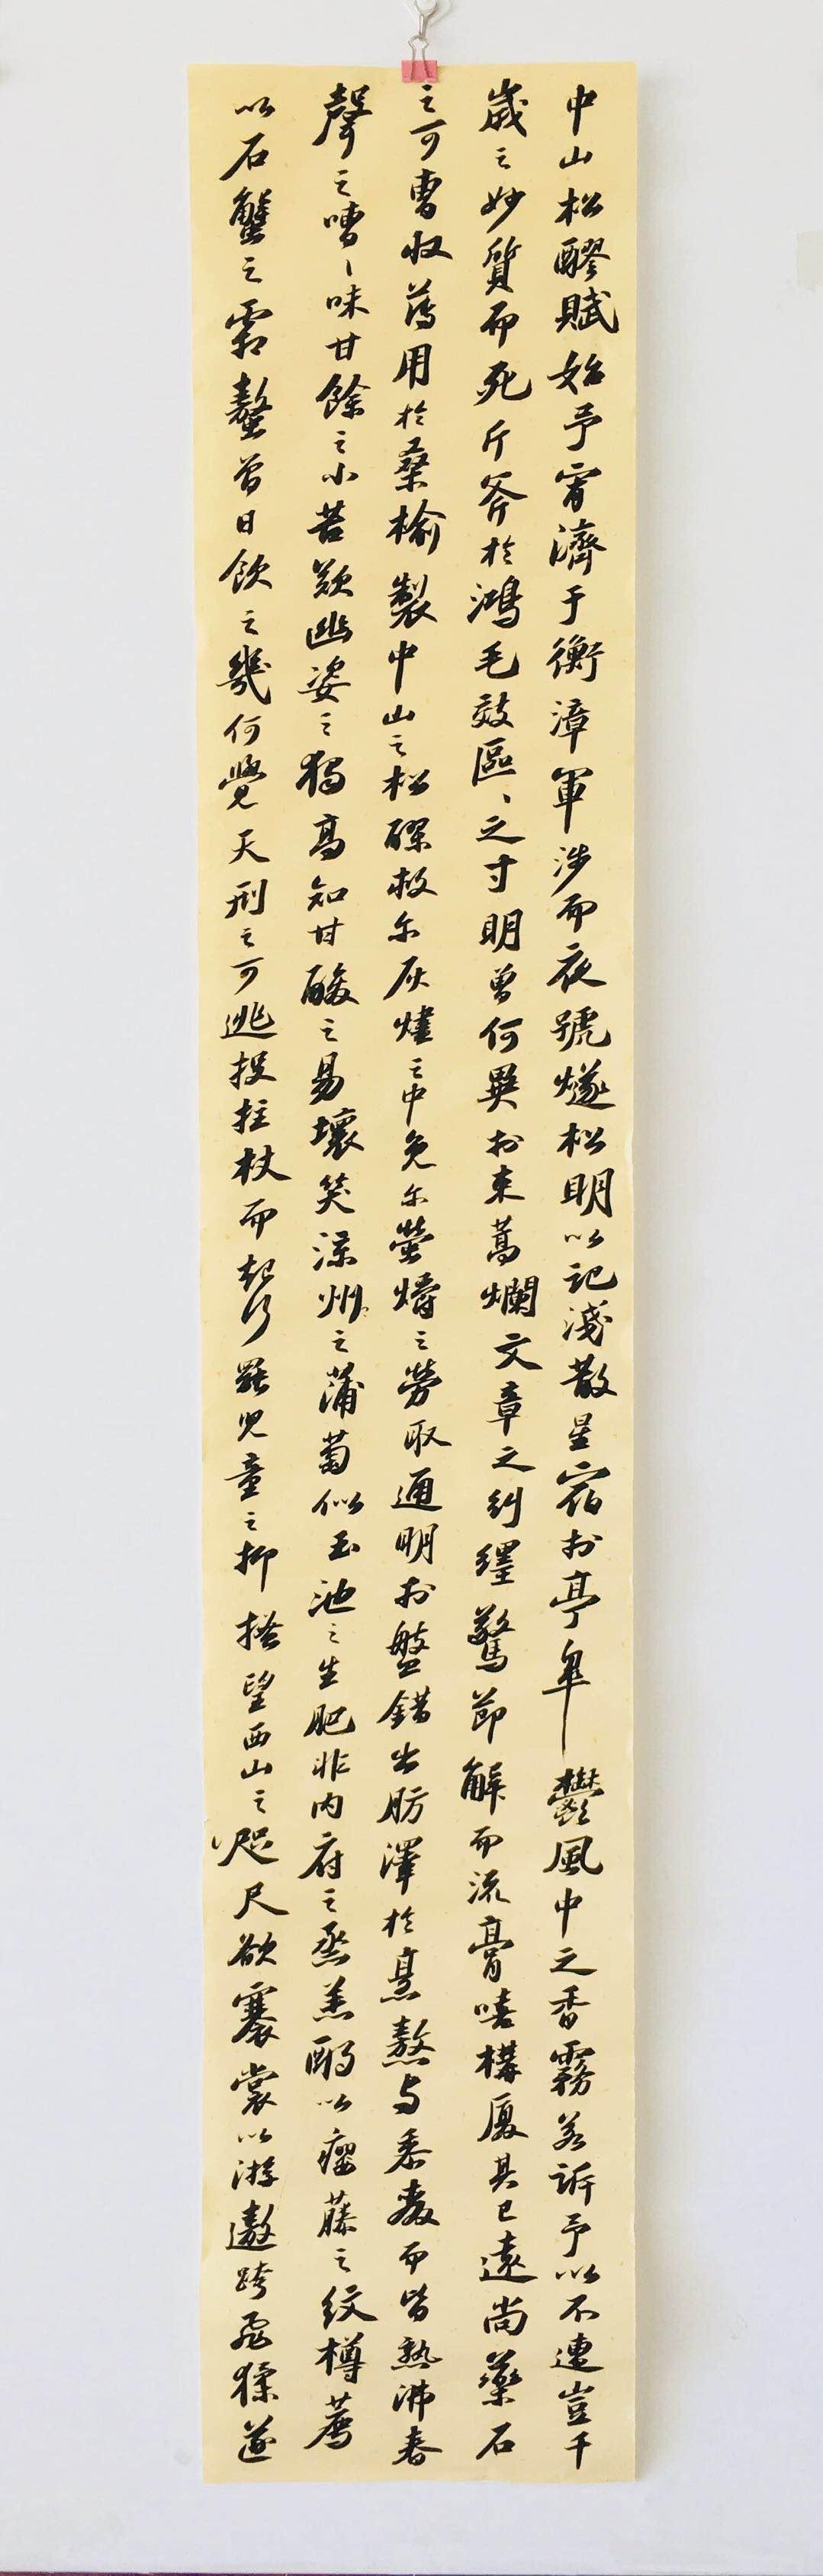 中山松醪賦始予宵濟于衡漳軍涉而夜號燧松明以記淺散星宿於亭皋鬱風中之香霧若訴予以不遭豈千
歲之妙質而死斤斧於鴻毛效區、之寸明曾何異於束蒿爛文章之糾纆驚節解而流膏嘻構厦其已遠尚藥石
之可曹收薄用於桑榆製中山之松醪救尔灰燼之中免尔螢爝之勞取通明於盤錯出肪澤於烹熬与黍麥而皆熟沸舂
聲之嘈〻味甘餘之小苦歎幽姿之獨高知甘酸之易壞笑涼州之蒲萄似玉池之生肥非内府之烝羔酌以癭藤之纹樽薦
以石蟹之霜螯曾日飲之幾何覺天刑之可逃投拄杖而起行罷兒童之抑搔望西山之咫尺欲褰裳以游遨跨飛猱遂